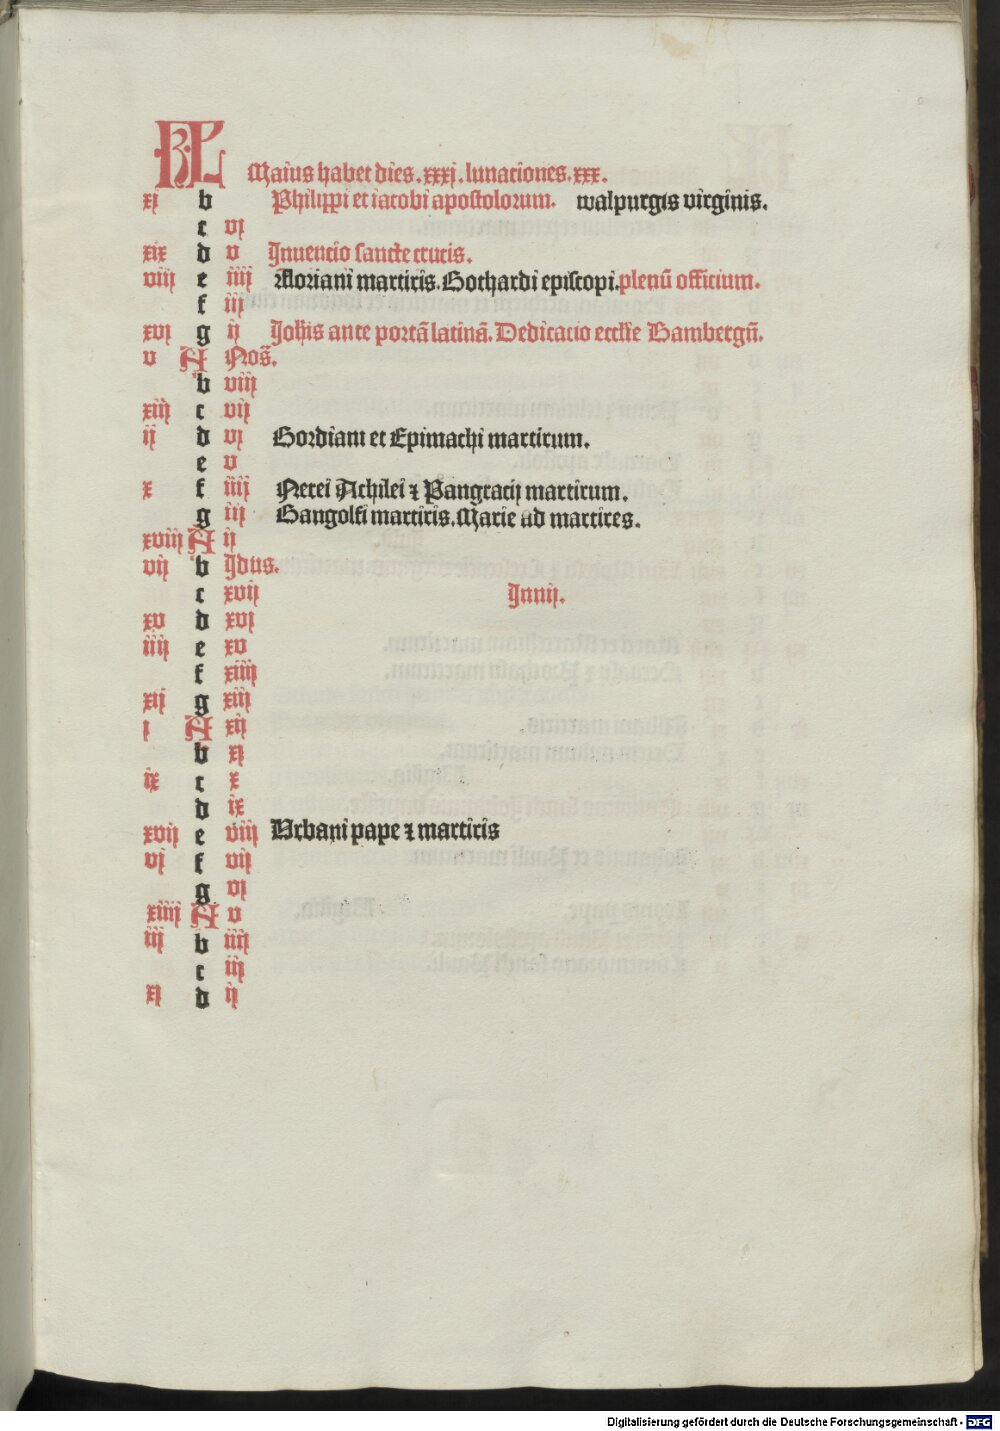 KL Maius habet dies .xxxj. lunaciones .xxx.
xj b Philippi et iacobi apostolorum. walpurgis virginis.
c vj
xix d v Jnuencio sancte crucis.
viij e iiij Floriani martiris. Gothardi episcopi. plenū officium.
f iij
xvj g ij Joh̄is ante portā latinā. Dedicatio eccl̄ie Bambergn̄.
v A Nos̄.
b viij
xiij c vij
ij d vj Gordiani et Epimachi martirum.
e v
x f iiij Nerei Achilei ⁊ Pangracij martirum.
g iij Gangolfi martiris. Marie ad martires.
xviij A ij
vij b Jdus.
c xvij Junij.
xv d xvj
iiij e xv
f xiiij
xij g xiij
j A xij
b xj
ix c x
d ix
xvij e viij Urbani pape ⁊ martiris
vj f vij
g vj
xiiij A v
iij b iiij
c iij
xj d ij
Digitalisierung gefördert durch die Deutsche Forschungsgemeinschaft - DFG